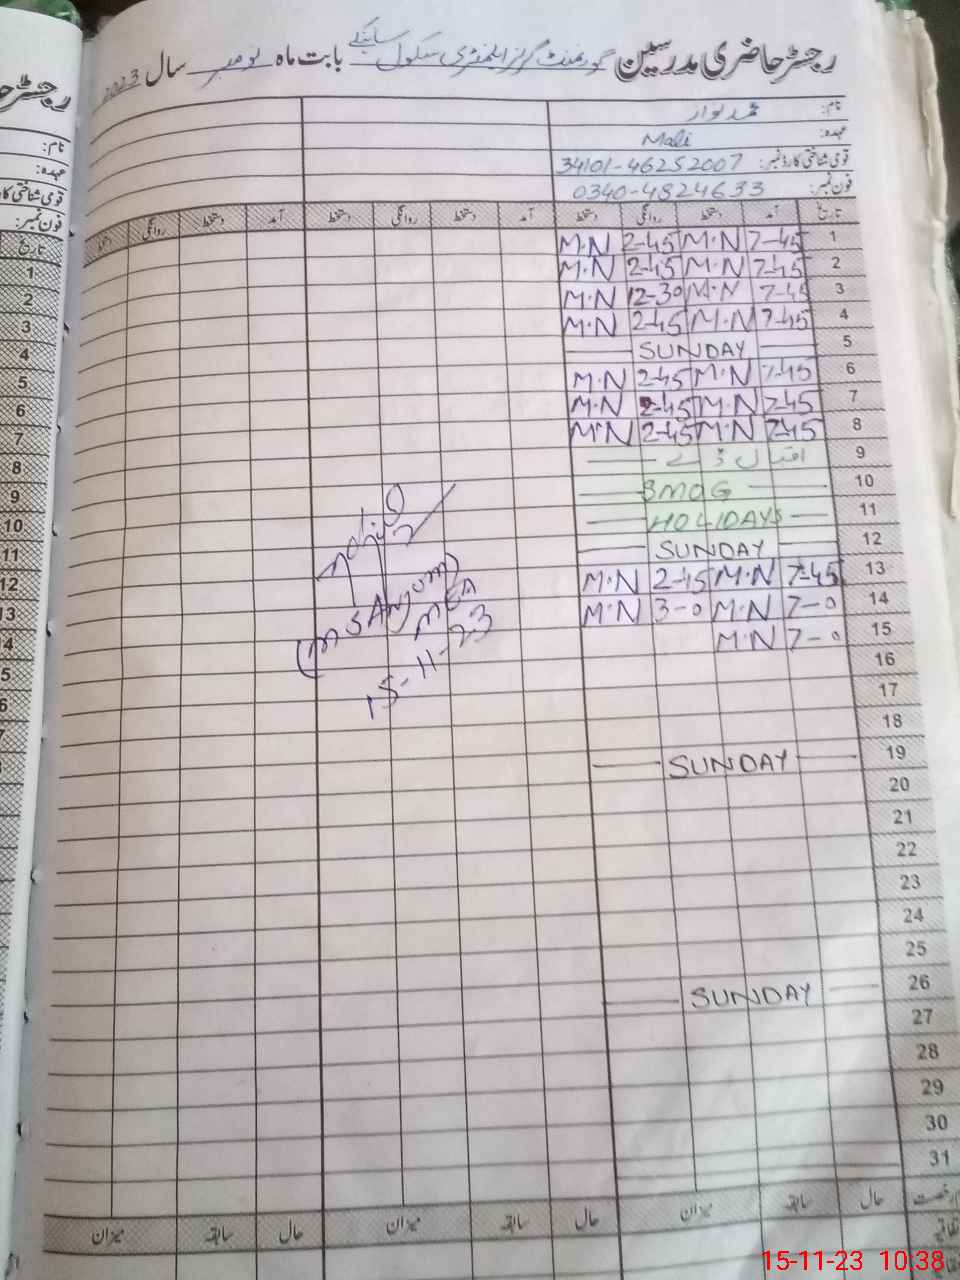 رجسٹر حاضری مدرسین گورنمنٹ گرلز ایلمنٹری سکول بابت ماہ نومبر سال 2023
نام: محمد نواز
عہدہ: Mali
قومی شناختی کارڈ نمبر: 34101-46252007
فون نمبر: 0340-4824633
تاریخ آمد دستخط روانگی دستخط آمد دستخط روانگی دستخط آمد دستخط روانگی دستخط
1 7-45 M.N 2-45 M.N
2 7-45 M.N 2-45 M.N
3 7-45 M.N 12-30 M.N
4 7-45 M.N 2-45 M.N
5 SUNDAY
6 7-45 M.N 2-45 M.N
7 7-45 M.N 2-45 M.N
8 7-45 M.N 2-45 M.N
9 اقبال ڈے
10 SMOG
11 HOLIDAYS
12 SUNDAY
13 7-45 M.N 2-45 M.N
14 7-0 M.N 3-0 M.N
15 7-0 M.N
16
17
18
19 SUNDAY
20
21
22
23
24
25
26 SUNDAY
27
28
29
30
31
(M S Anjum)
MEA
15-11-23
رخصت حال سابقہ میزان حال سابقہ میزان حال سابقہ میزان
رجسٹر حا
نام:
عہدہ:
قومی شناختی کار
فون نمبر:
تاریخ
1
2
3
4
5
6
7
8
9
10
11
12
13
14
15-11-23 10:38